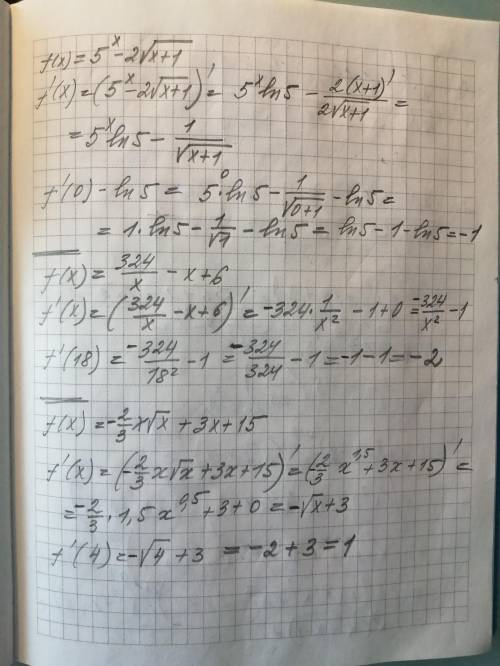 f(x) = 5^x - 2√(x+1)
f'(x) = (5^x - 2√(x+1))' = 5^x ln5 - 2(x+1)'/(2√(x+1)) =
= 5^x ln5 - 1/√(x+1)
f'(0) - ln5 = 5^0 · ln5 - 1/√(0+1) - ln5 =
= 1 · ln5 - 1/√1 - ln5 = ln5 - 1 - ln5 = -1
f(x) = 324/x - x + 6
f'(x) = (324/x - x + 6)' = -324 · 1/x² - 1 + 0 = -324/x² - 1
f'(18) = -324/18² - 1 = -324/324 - 1 = -1 - 1 = -2
f(x) = -2/3 x√x + 3x + 15
f'(x) = (-2/3 x√x + 3x + 15)' = (-2/3 x^1,5 + 3x + 15)' =
= -2/3 · 1,5 x^0,5 + 3 + 0 = -√x + 3
f'(4) = -√4 + 3 = -2 + 3 = 1